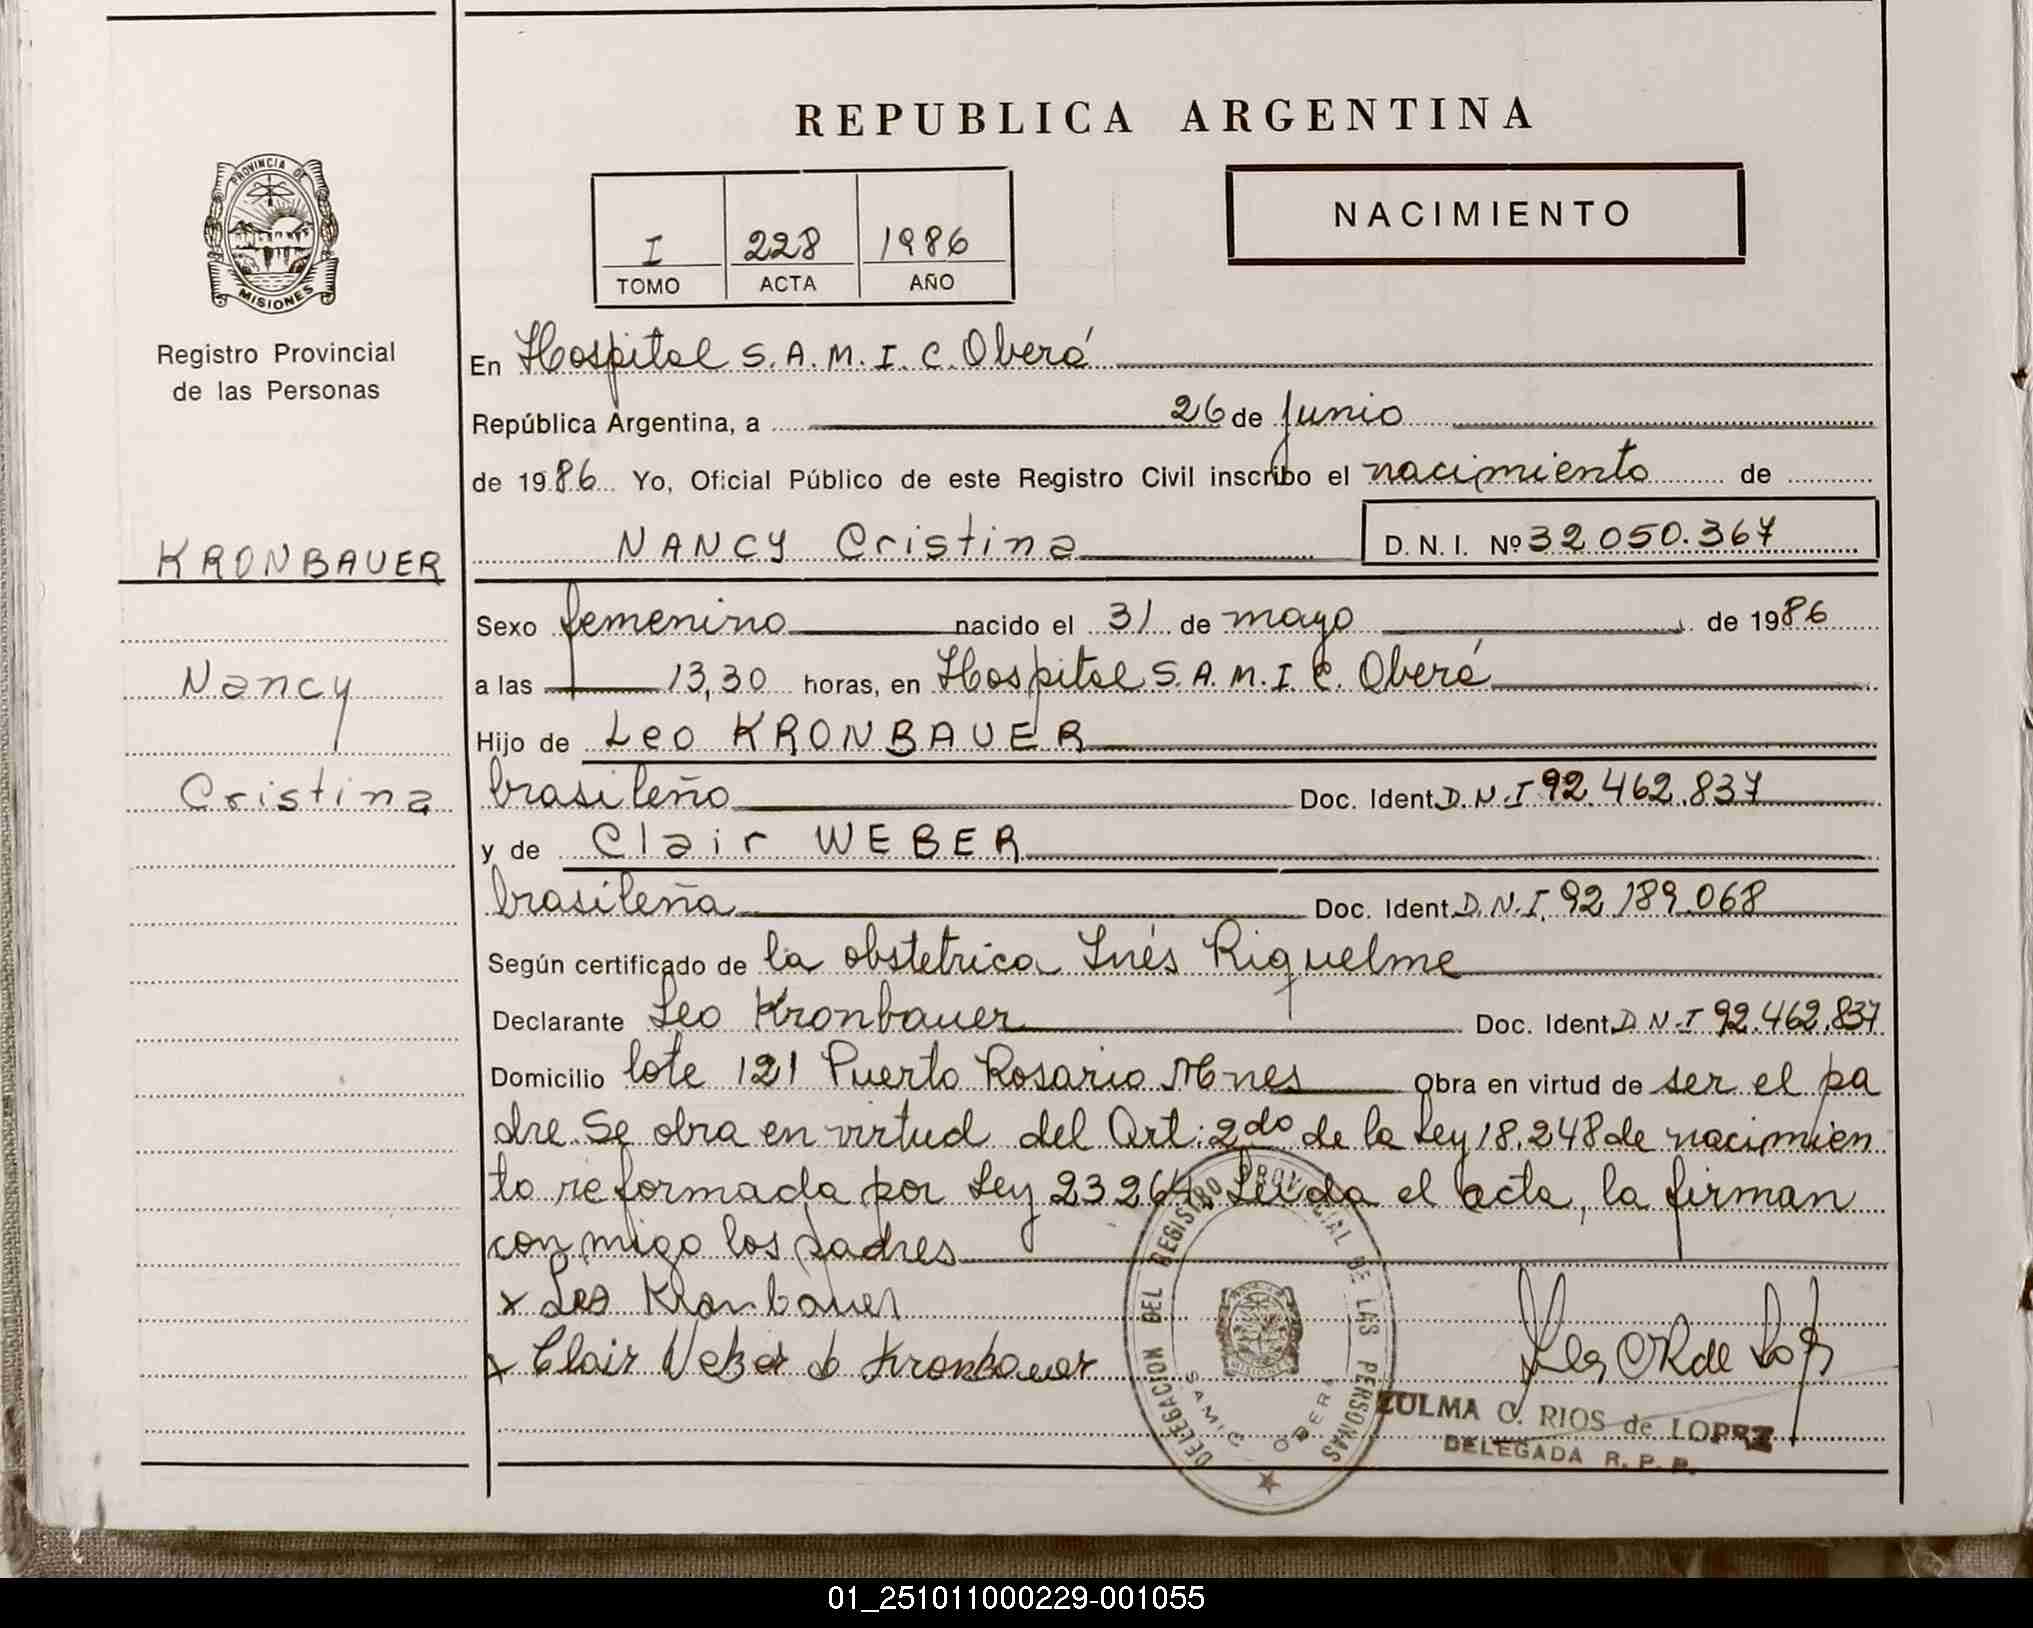 REPUBLICA ARGENTINA
PROVINCIA DE
MISIONES
Registro Provincial
de las Personas
I 228 1986
TOMO ACTA AÑO
NACIMIENTO
En Hospital S.A.M.I.C. Oberá
República Argentina, a 26 de junio
de 1986 Yo, Oficial Público de este Registro Civil inscribo el nacimiento de
NANCY Cristina D.N.I. Nº 32.050.367
KRONBAUER
Nancy
Cristina
Sexo femenino nacido el 31 de mayo de 1986
a las 13,30 horas, en Hospital S.A.M.I.C. Oberá
Hijo de Leo KRONBAUER
brasileño Doc. Ident. D.N.I 92.462.837
y de Clair WEBER
brasileña Doc. Ident. D.N.I. 92.189.068
Según certificado de la obstetrica Inés Riquelme
Declarante Leo Kronbauer Doc. Ident. D.N.I 92.462.837
Domicilio lote 121 Puerto Rosario Mnes Obra en virtud de ser el pa
dre. Se obra en virtud del Art. 2do de la Ley 18.248 de nacimien
to reformada por Ley 23264 Leida el acta, la firman
con migo los padres
x Leo Kronbauer
x Clair Weber d Kronbauer
DELEGACION DEL REGISTRO PROVINCIAL DE LAS PERSONAS
SAMIC OBERA
MISIONES
ZULMA C. RIOS de LOPEZ
DELEGADA R. P. P.
01_251011000229-001055